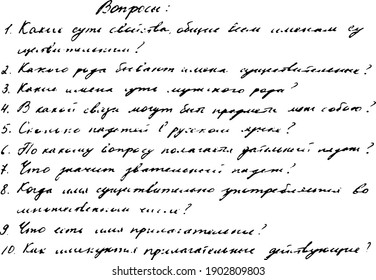 Вопросы:
1. Какие суть свойства, общие всем именам су
ществительным?
2. Какого рода бывают имена существительные?
3. Какие имена суть мужского рода?
4. В какой связи могут быть предметы меж собою?
5. Сколько падежей в русском языке?
6. По какому вопросу полагается дательный падеж?
7. Что значит звательный падеж?
8. Когда имя существительно употребляется во
множественном числе?
9. Что есть имя прилагательное?
10. Как именуются прилагательные действующие?
shutterstock.com · 1902809803